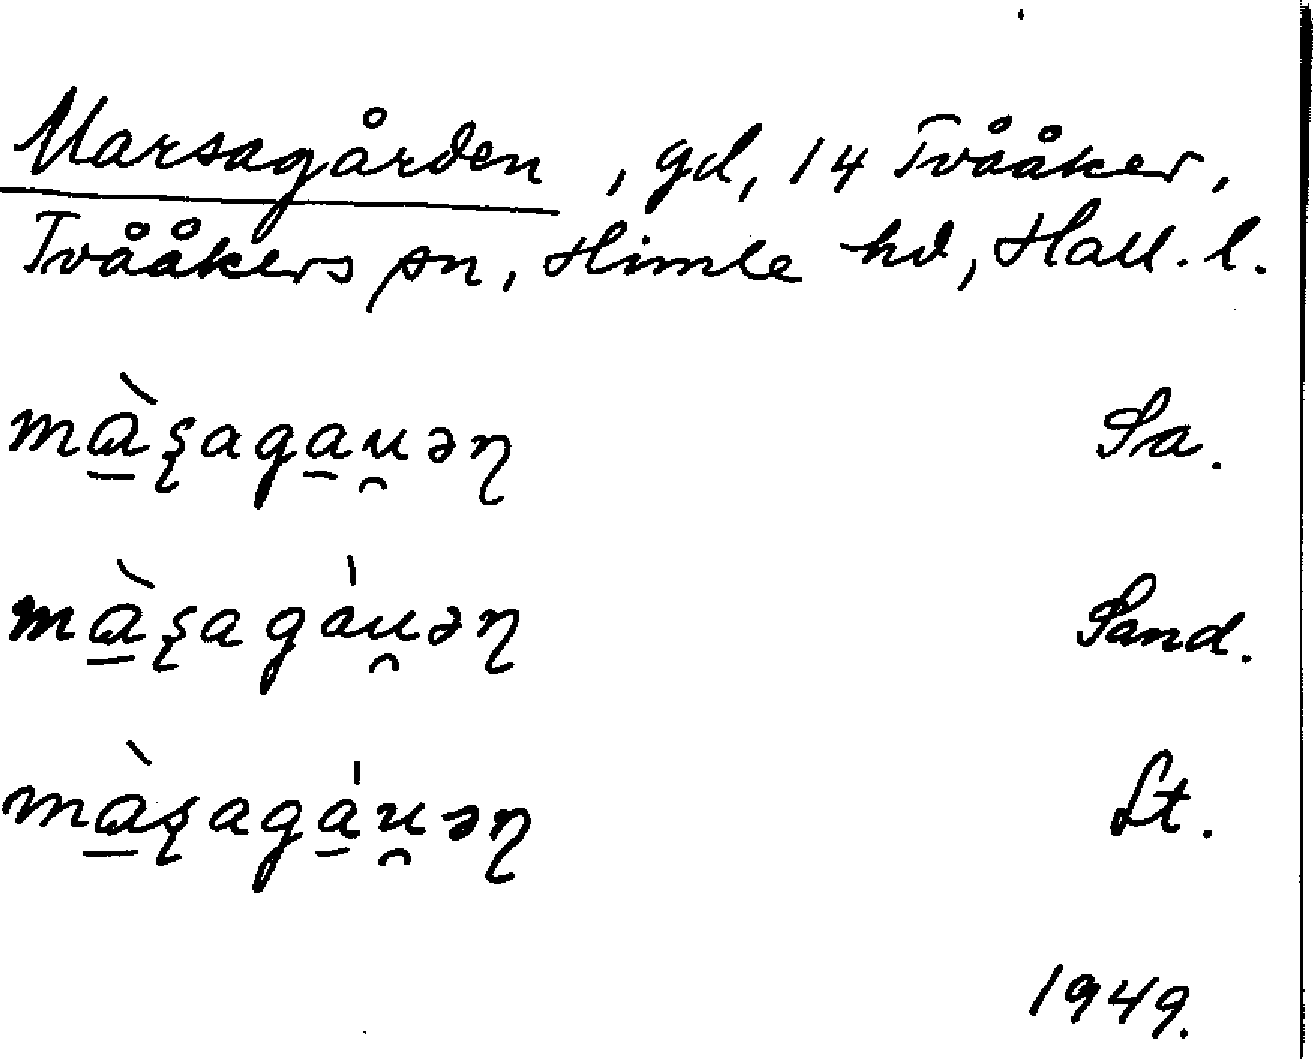 Marsagården, gd, 14 Tvååker,
Tvååkers sn, Himle hd, Hall. l.
mὰ̱ʂagα̱u̯əɳ Sa.
mὰ̱ʂagàu̯əɳ Sand.
mὰ̱ʂagα̱̍u̯əɳ Lt.
1949.